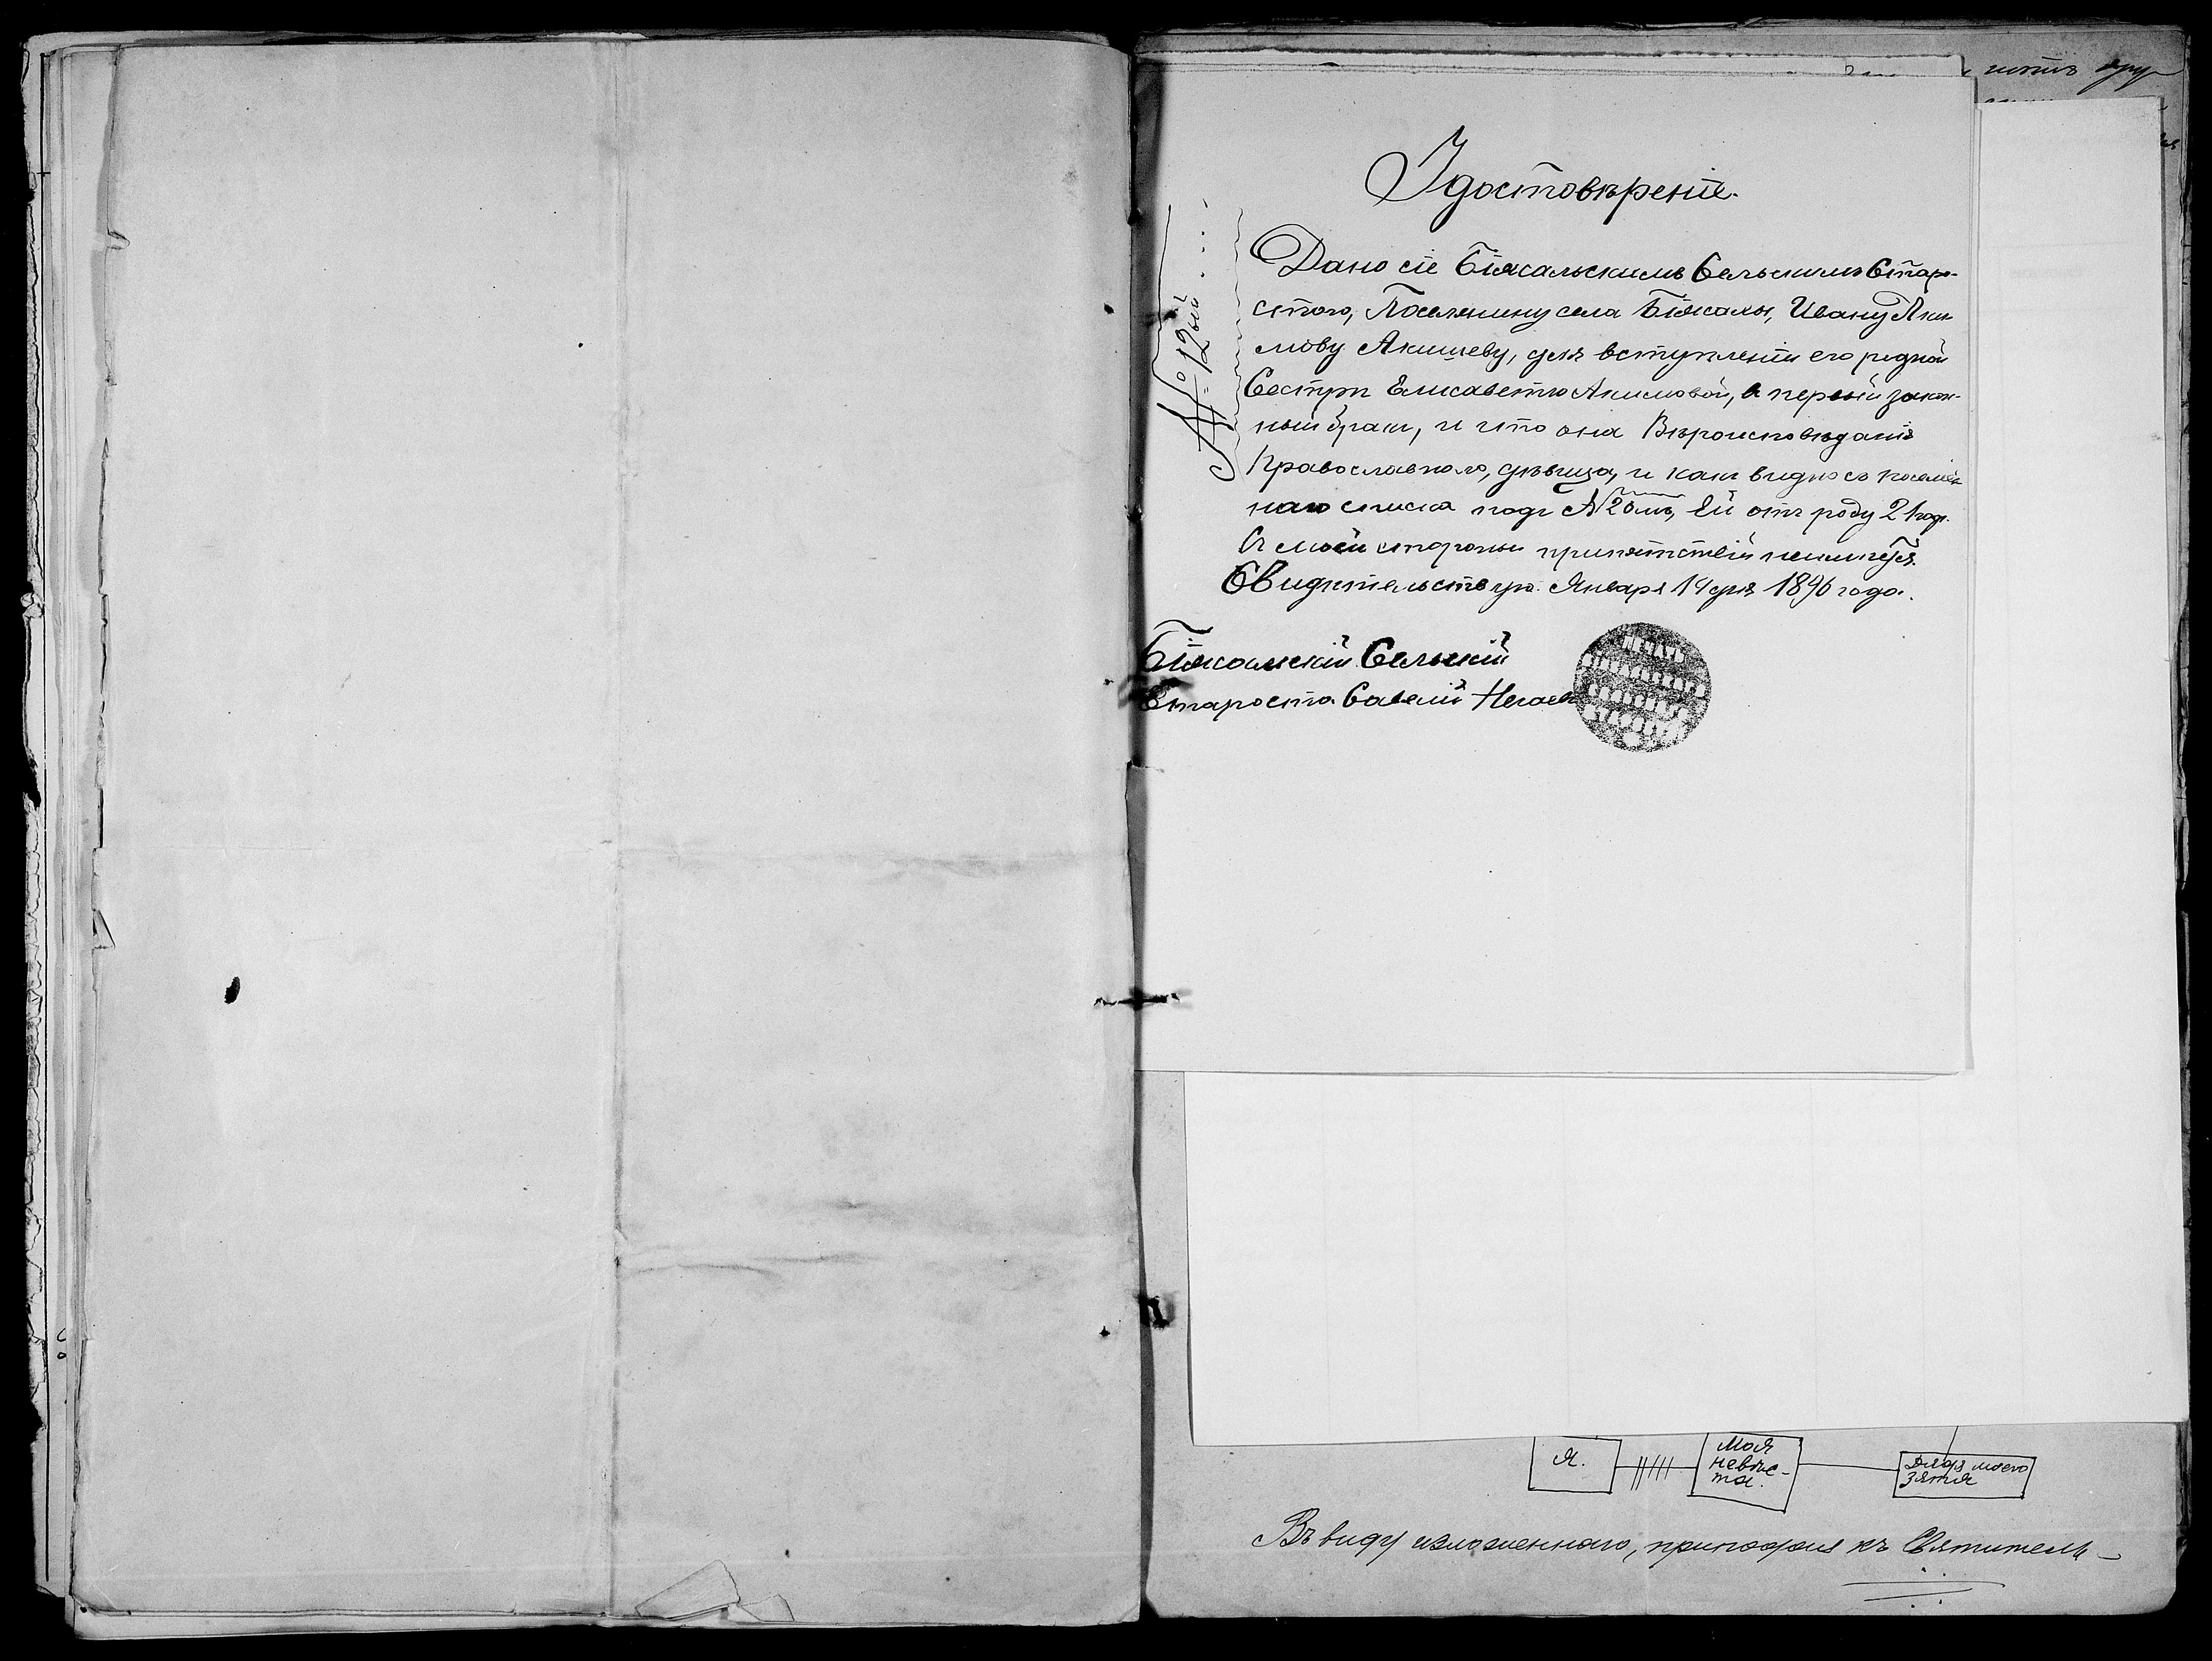 № 12ый
Удостовѣреніе.
Дано сіе Біюкальскимъ Сельскимъ Старо-
стою, Поселянину села Біюкалы, Ивану Яки-
мову Акишеву, для вступленіи его родной
Сестри Елисавето Акимовой, в первій закон-
ный брак, и что она Вѣроисповѣданія
Православного, дѣвица, и как видно со посемей-
наго списка подъ №20мъ, Ей отъ роду 21 годъ.
С моей стороны припятствій неимѣется.
Свидѣтельствую. Января 14 дня 1896 года.
Сельскій
Староста Савелій
ПЕЧАТЬ
Я.
Моя
невѣс-
та.
Дядя моего
зятя
Въ виду изложеннаго, припадая къ Святитель-